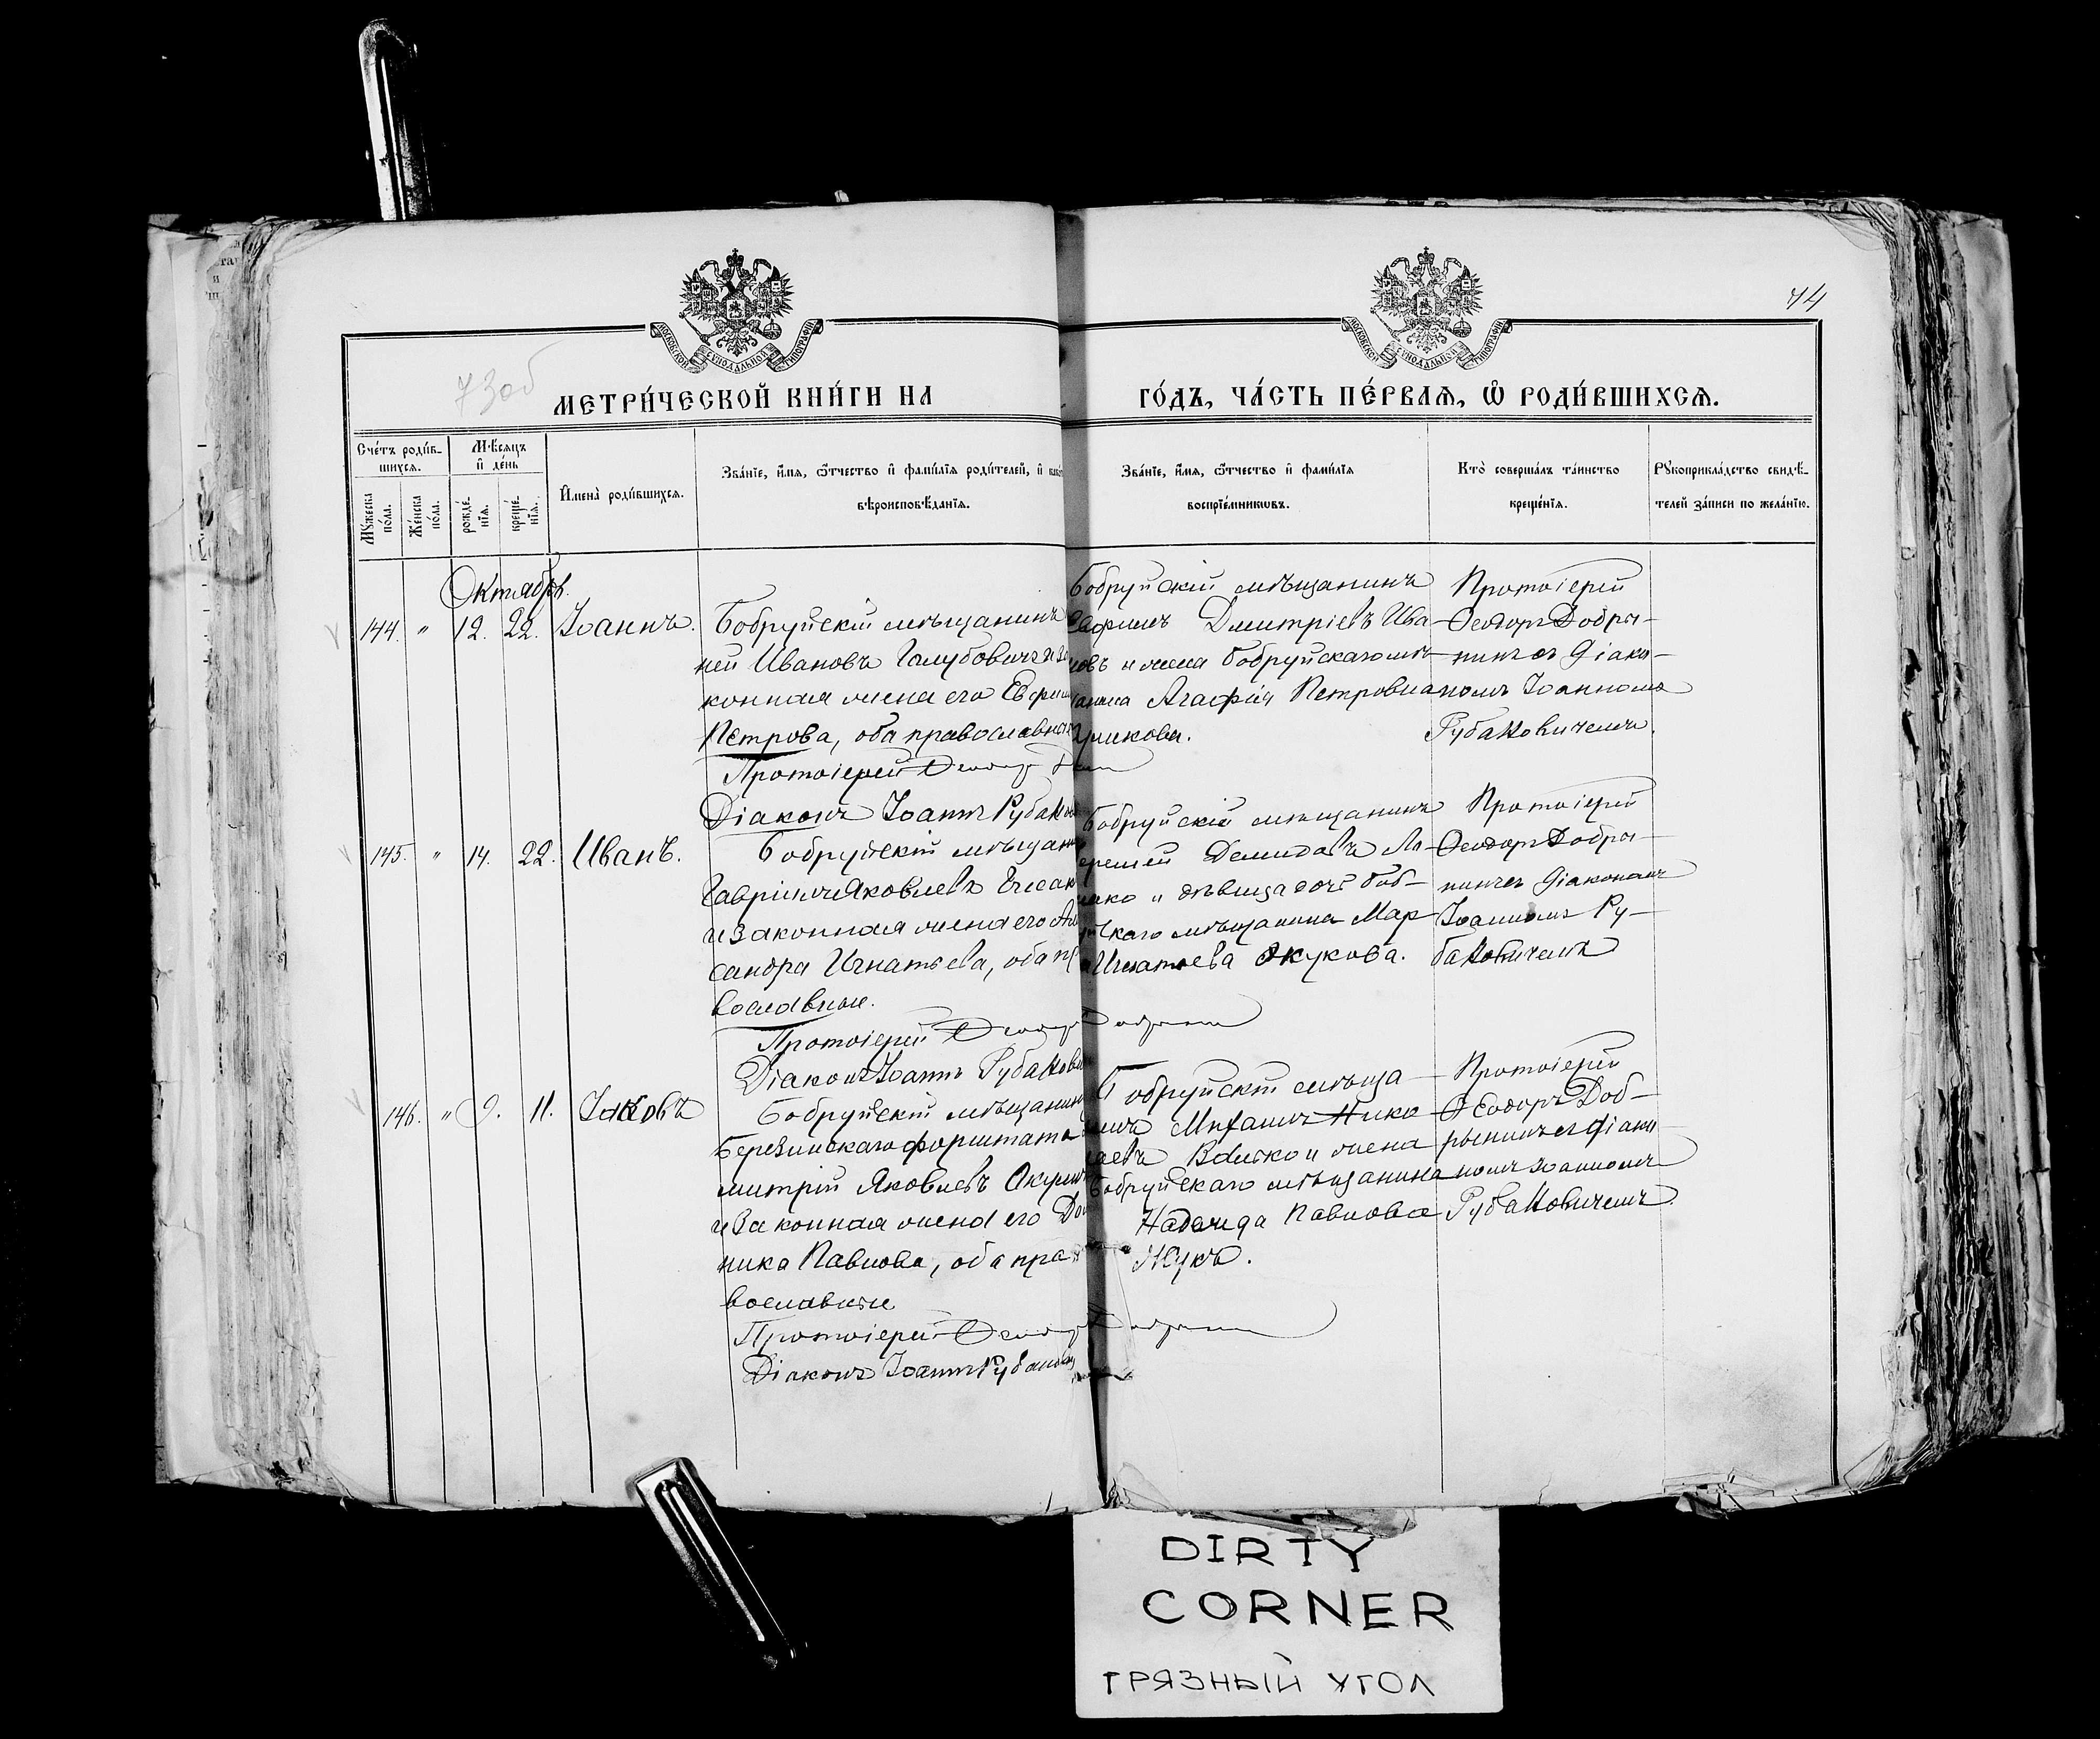 74
73об
МОСКОВСКОЙ СѴНОДАЛЬНОЙ ТИПОГРАФІИ
МОСКОВСКОЙ СѴНОДАЛЬНОЙ ТИПОГРАФІИ
МЕТРИ́ЧЕСКОЙ КНИ́ГИ НА
ГО́ДЪ, ЧА́СТЬ ПЕ́РВАѦ, Ѡ҆ РОДИ́ВШИХСѦ.
Сче́тъ роди́в-
шихсѧ.
Мѣ́сѧцъ
и҆ де́нь
Мꙋ́жеска
по́ла.
Же́нска
по́ла.
рожде́-
нїѧ.
креще́-
нїѧ.
И҆мена̀ роди́вшихсѧ.
Зва́нїе, и҆́мѧ, ѻ҆́тчество и҆ фамѝлїѧ роди́телей, и҆
вѣроисповѣ́данїѧ.
Зва́нїе, и҆́мѧ, ѻ҆́тчество и҆ фамѝлїѧ
воспрїе́мникѡвъ.
Кто̀ соверша́лъ та́инство
креще́нїѧ.
Рꙋкоприкла́дство свидѣ́-
телей за́писи по жела́нїю.
Октябрь.
144. " 12. 22. Іоаннъ.
Бобруйскій мѣщанинъ
ней Ивановъ Голубовичъ и за
конная жена его Евфим
Петрова, оба православные
Протоіерей Феодоръ
Діаконъ Іоаннъ Рубанов
Бобруйскій мѣщанинъ
Дмитріевъ Ива-
овъ и жена бобруйскаго мѣ-
анина Агафія Петровна
рикова.
Протоіерей
Феодоръ Добры-
нинъ съ діако-
номъ Іоанномъ
Рубановичемъ.
145. " 14. 22. Иванъ.
Бобруйскій мѣщани
Гавріилъ Яковлевъ
и законная жена его Ал
сандра Игнатьева, оба пр
вославные.
Протоіерей Феодоръ Добрынинъ
Діаконъ Іоаннъ Рубанови
Бобруйскій мѣщанинъ
Демидовъ
и дѣвица дочь боб-
скаго мѣщанина Мар
Игнатьева Жукова.
Протоіерей
Феодоръ Добры-
нинъ съ діакономъ
Іоанномъ Ру-
бановичемъ
146. " 9. 11. Іаковъ
Бобруйскій мѣщанинъ
Березинскаго форштата
митрій Яковлевъ
и законная жена его До
ника Павлова, оба пра
вославные
Протоіерей Феодоръ Добрынинъ
Діаконъ Іоаннъ Рубанов
Бобруйскій мѣща-
Нико
аевъ и жена
Бобруйскаго мѣщанина
Надежда Павлова
Жукъ.
Протоіерей
Феодоръ Доб-
рынинъ съ діако-
номъ Іоанномъ
Рубановичемъ.
DIRTY
CORNER
ГРЯЗНЫЙ УГОЛ